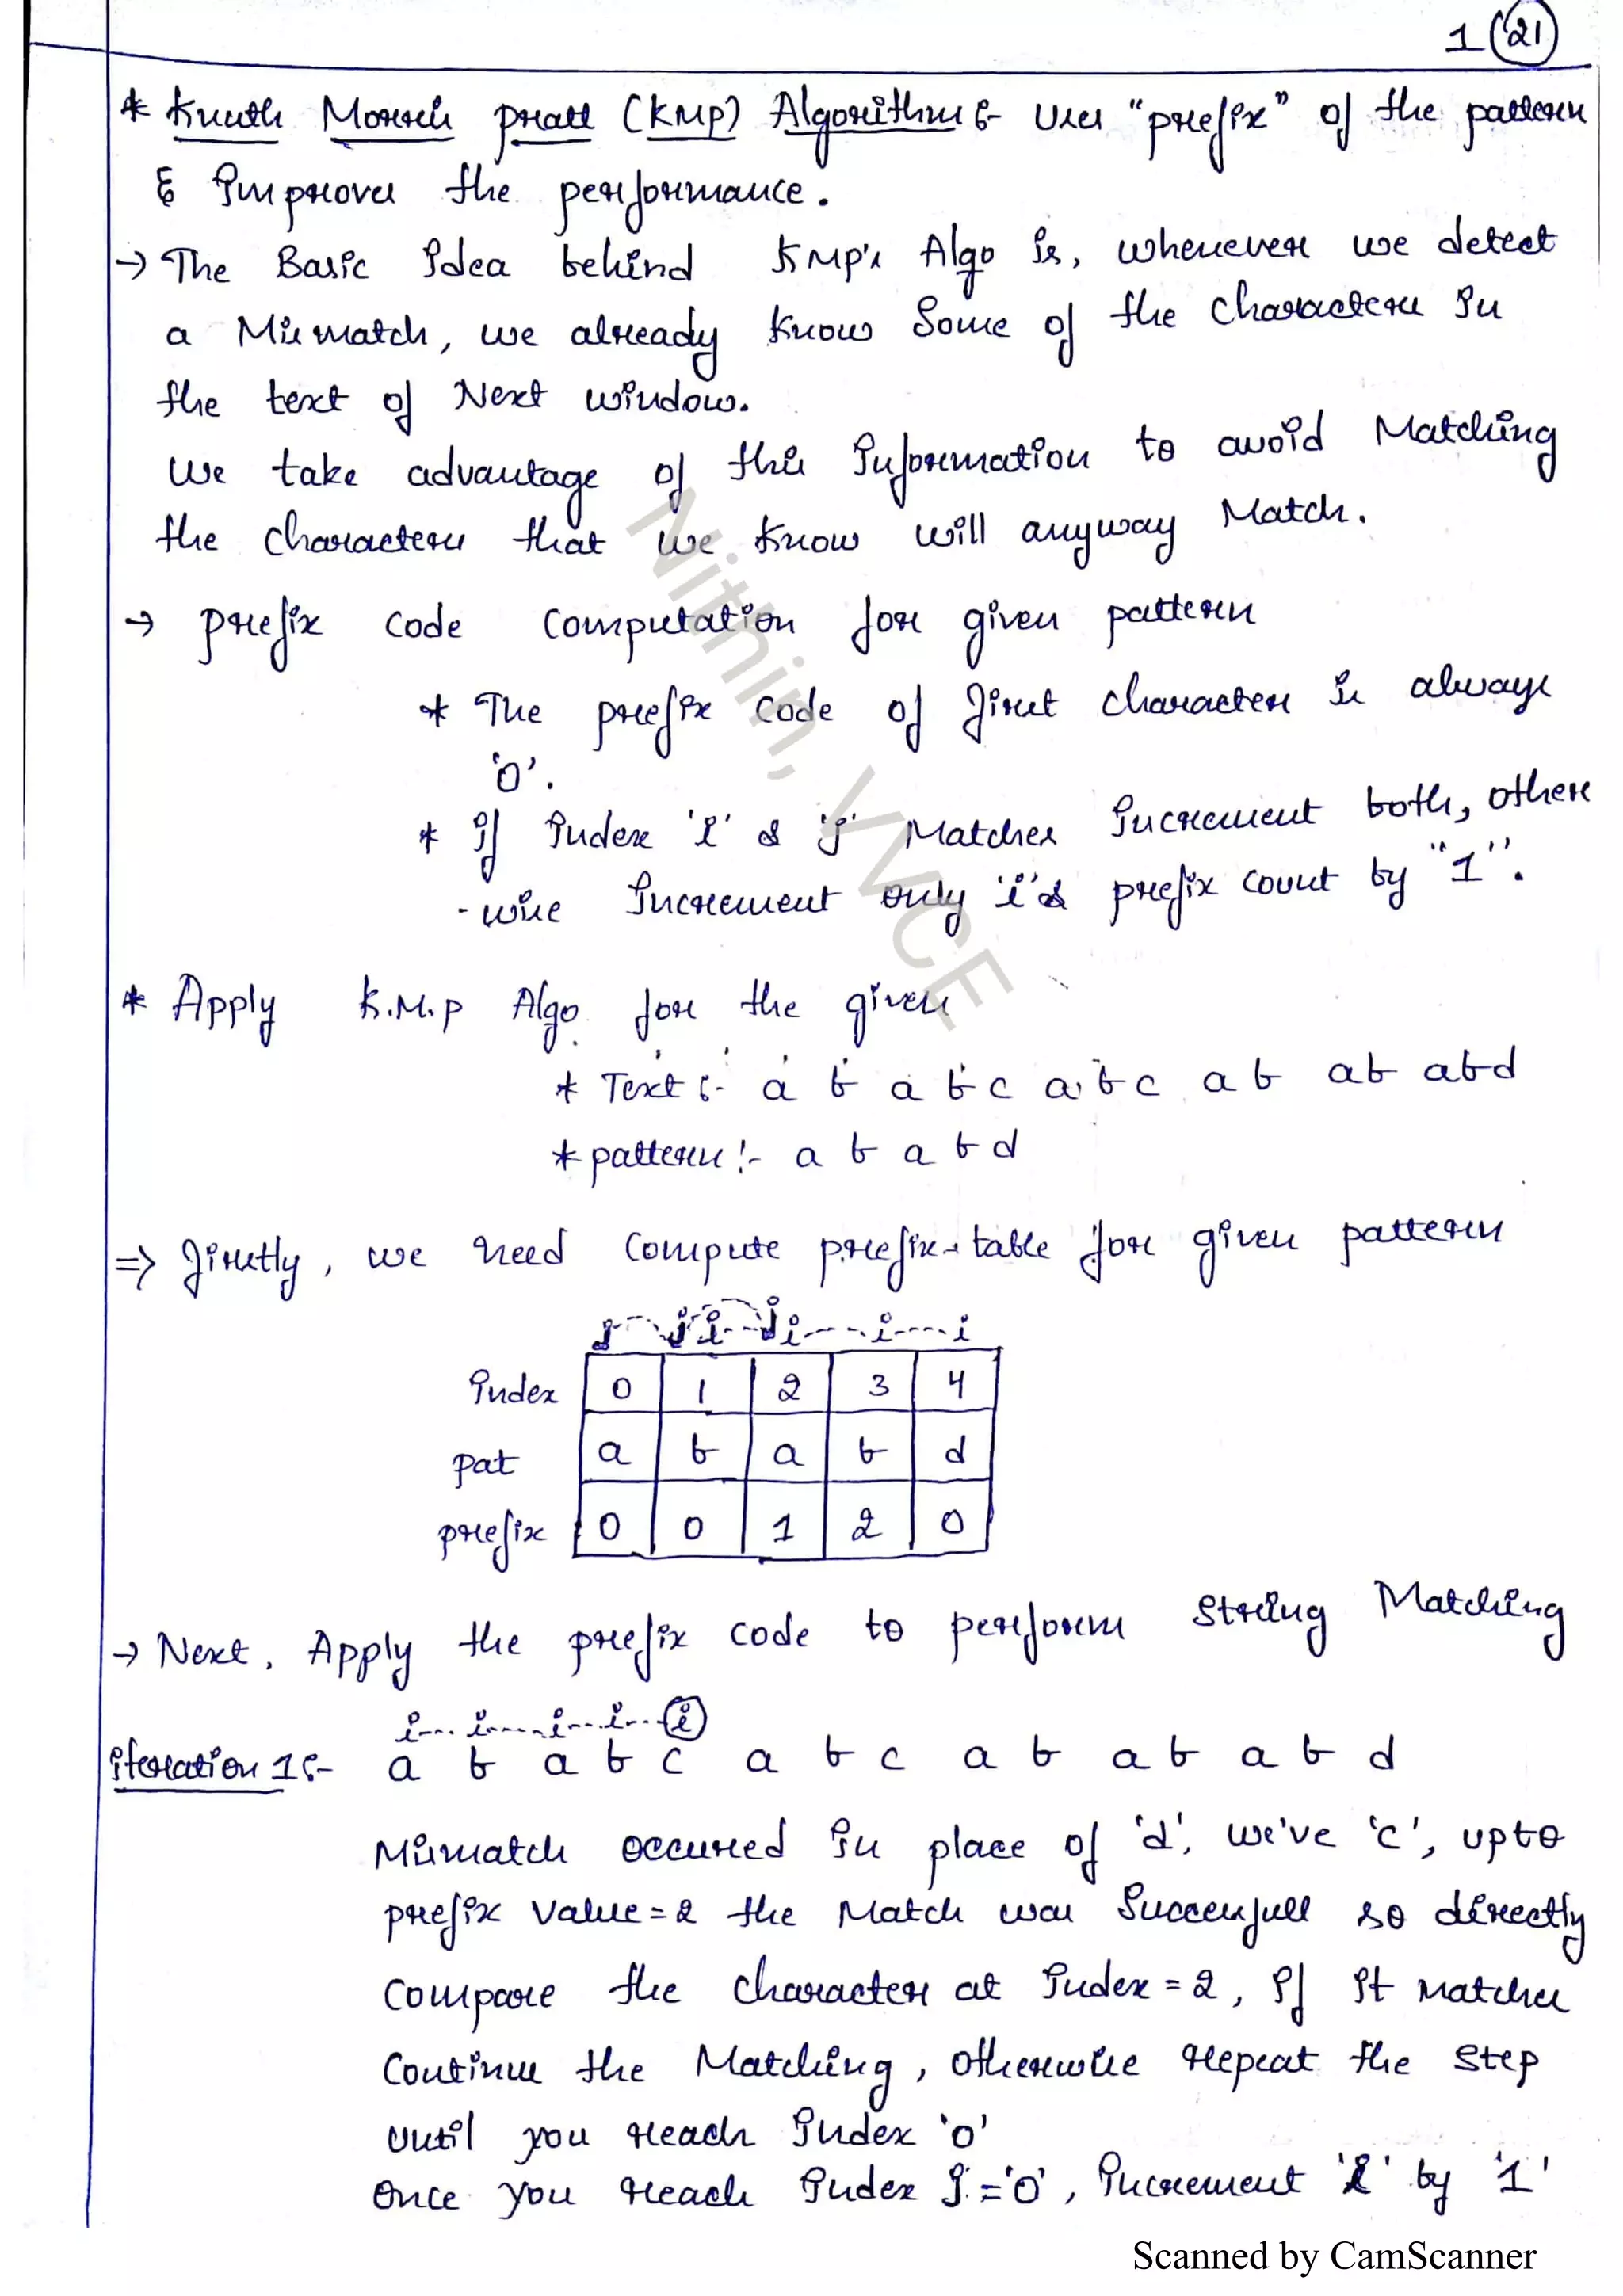 1 (21)
* Knuth Morris pratt (KMP) Algorithm :- Uses "prefix" of the pattern
& Improves the performance.
→ The Basic Idea behind KMP's Algo is, whenever we detect
a Mismatch, we already know Some of the characters in
the text of Next window.
We take advantage of this Information to avoid Matching
the characters that we know will anyway Match.
→ prefix code computation for given pattern
* The prefix code of first character is always
'0'.
* If Index 'i' & 'j' Matches Increment both, other
-wise Increment only 'i' & prefix count by "1".
* Apply K.M.P Algo for the given
* Text :- a b a b c a b c a b a b a b d
* pattern :- a b a b d
⇒ firstly, we need compute prefix-table for given pattern
j j i j i i i
Index 0 1 2 3 4
pat a b a b d
prefix 0 0 1 2 0
→ Next, Apply the prefix code to perform String Matching
i i i i i
iteration 1 :- a b a b c a b c a b a b a b d
Mismatch occured in place of 'd', we've 'c', upto
prefix value = 2 the Match was Successfull so directly
compare the character at Index = 2, If It matches
Continue the Matching, otherwise repeat the step
until you reach Index '0'
once you reach Index j = '0', Increment 'i' by '1'
Nithin, VVCE
Scanned by CamScanner